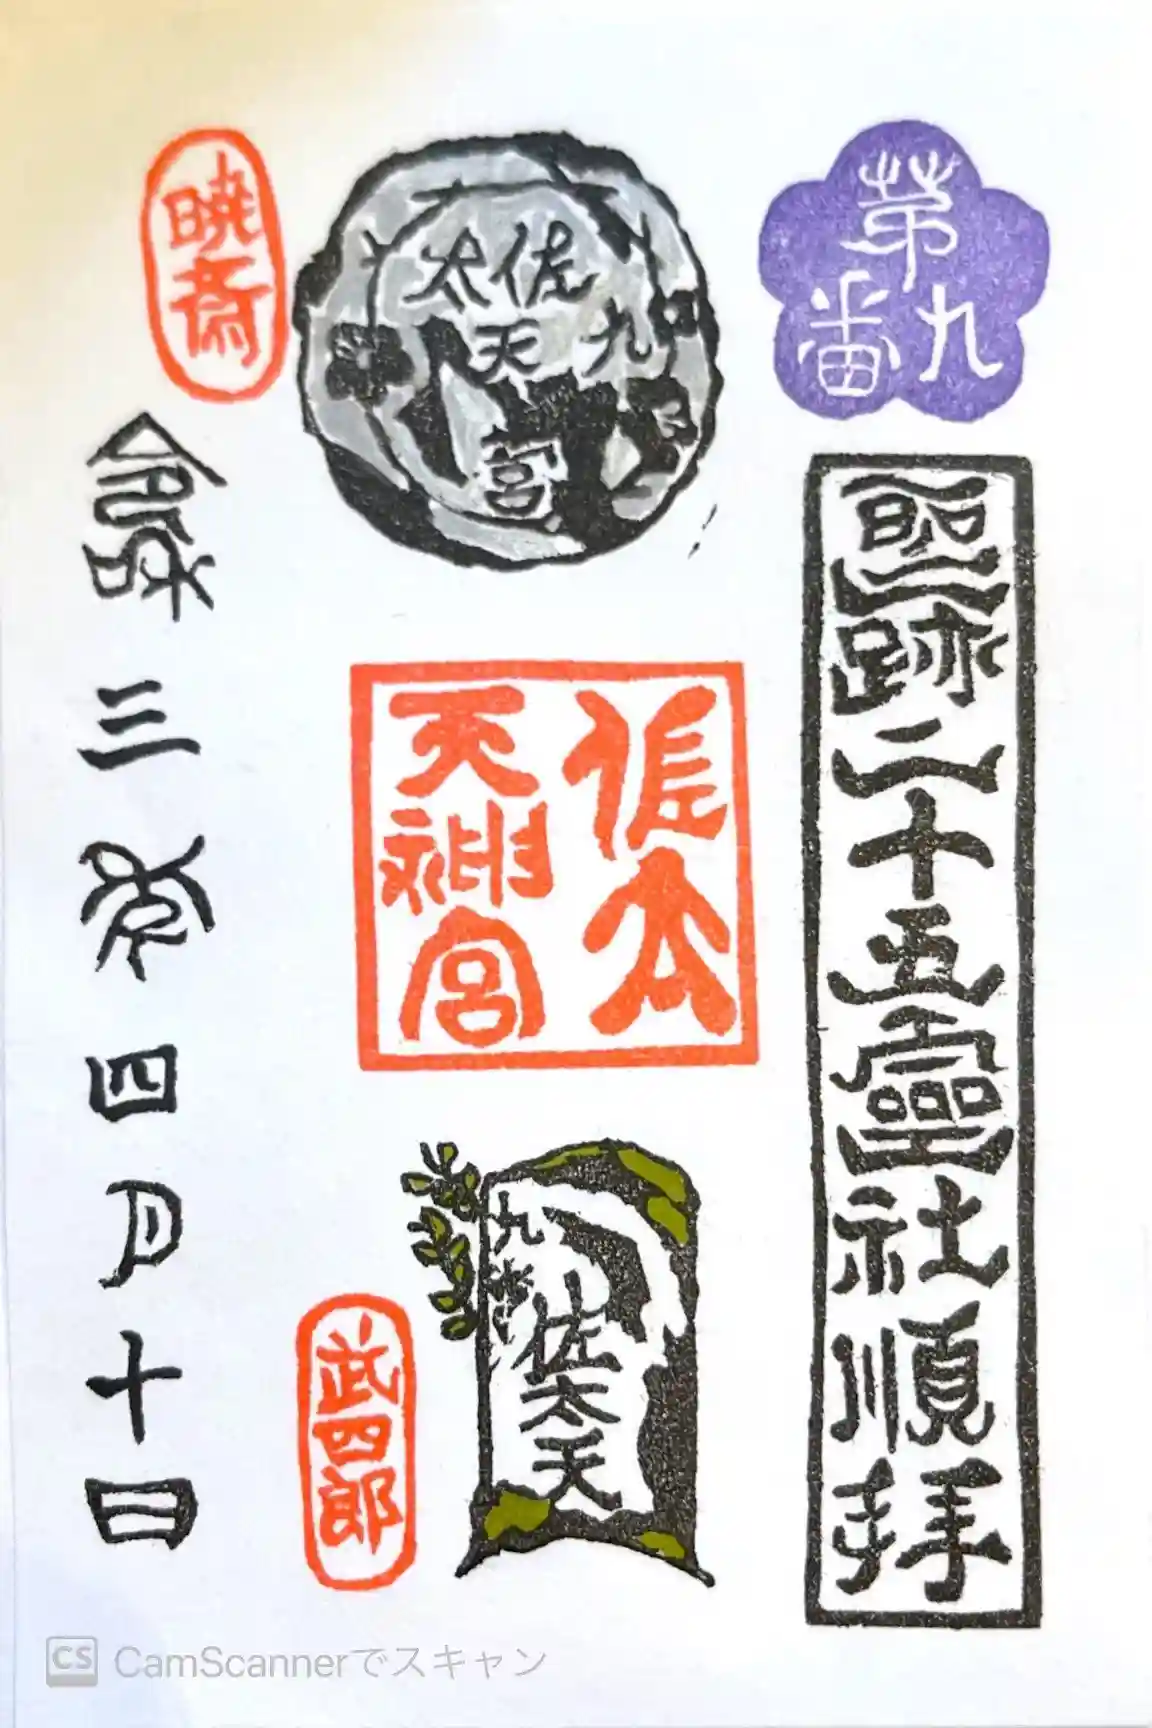 第九番
聖跡二十五霊社順拝
佐太
天
九
宮
佐太
天神宮
九
佐太天
暁斎
武四郎
令和三年四月十日
CS CamScannerでスキャン